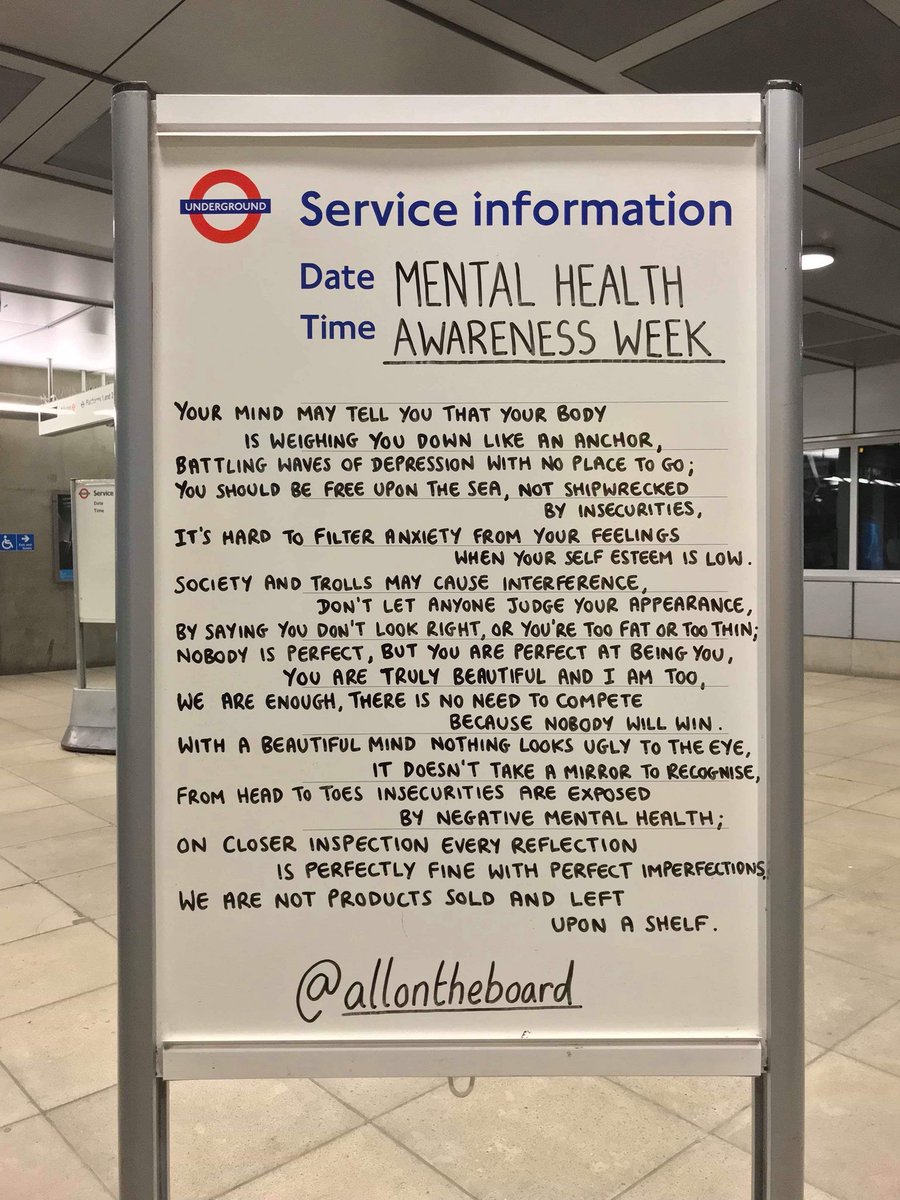 UNDERGROUND
Service information
Date MENTAL HEALTH
Time AWARENESS WEEK
YOUR MIND MAY TELL YOU THAT YOUR BODY
IS WEIGHING YOU DOWN LIKE AN ANCHOR,
BATTLING WAVES OF DEPRESSION WITH NO PLACE TO GO;
YOU SHOULD BE FREE UPON THE SEA, NOT SHIPWRECKED
BY INSECURITIES,
IT'S HARD TO FILTER ANXIETY FROM YOUR FEELINGS
WHEN YOUR SELF ESTEEM IS LOW.
SOCIETY AND TROLLS MAY CAUSE INTERFERENCE,
DON'T LET ANYONE JUDGE YOUR APPEARANCE,
BY SAYING YOU DON'T LOOK RIGHT, OR YOU'RE TOO FAT OR TOO THIN;
NOBODY IS PERFECT, BUT YOU ARE PERFECT AT BEING YOU,
YOU ARE TRULY BEAUTIFUL AND I AM TOO,
WE ARE ENOUGH, THERE IS NO NEED TO COMPETE
BECAUSE NOBODY WILL WIN.
WITH A BEAUTIFUL MIND NOTHING LOOKS UGLY TO THE EYE,
IT DOESN'T TAKE A MIRROR TO RECOGNISE,
FROM HEAD TO TOES INSECURITIES ARE EXPOSED
BY NEGATIVE MENTAL HEALTH;
ON CLOSER INSPECTION EVERY REFLECTION
IS PERFECTLY FINE WITH PERFECT IMPERFECTIONS,
WE ARE NOT PRODUCTS SOLD AND LEFT
UPON A SHELF.
@allontheboard
Service
Date
Time
Platforms 1 and 2